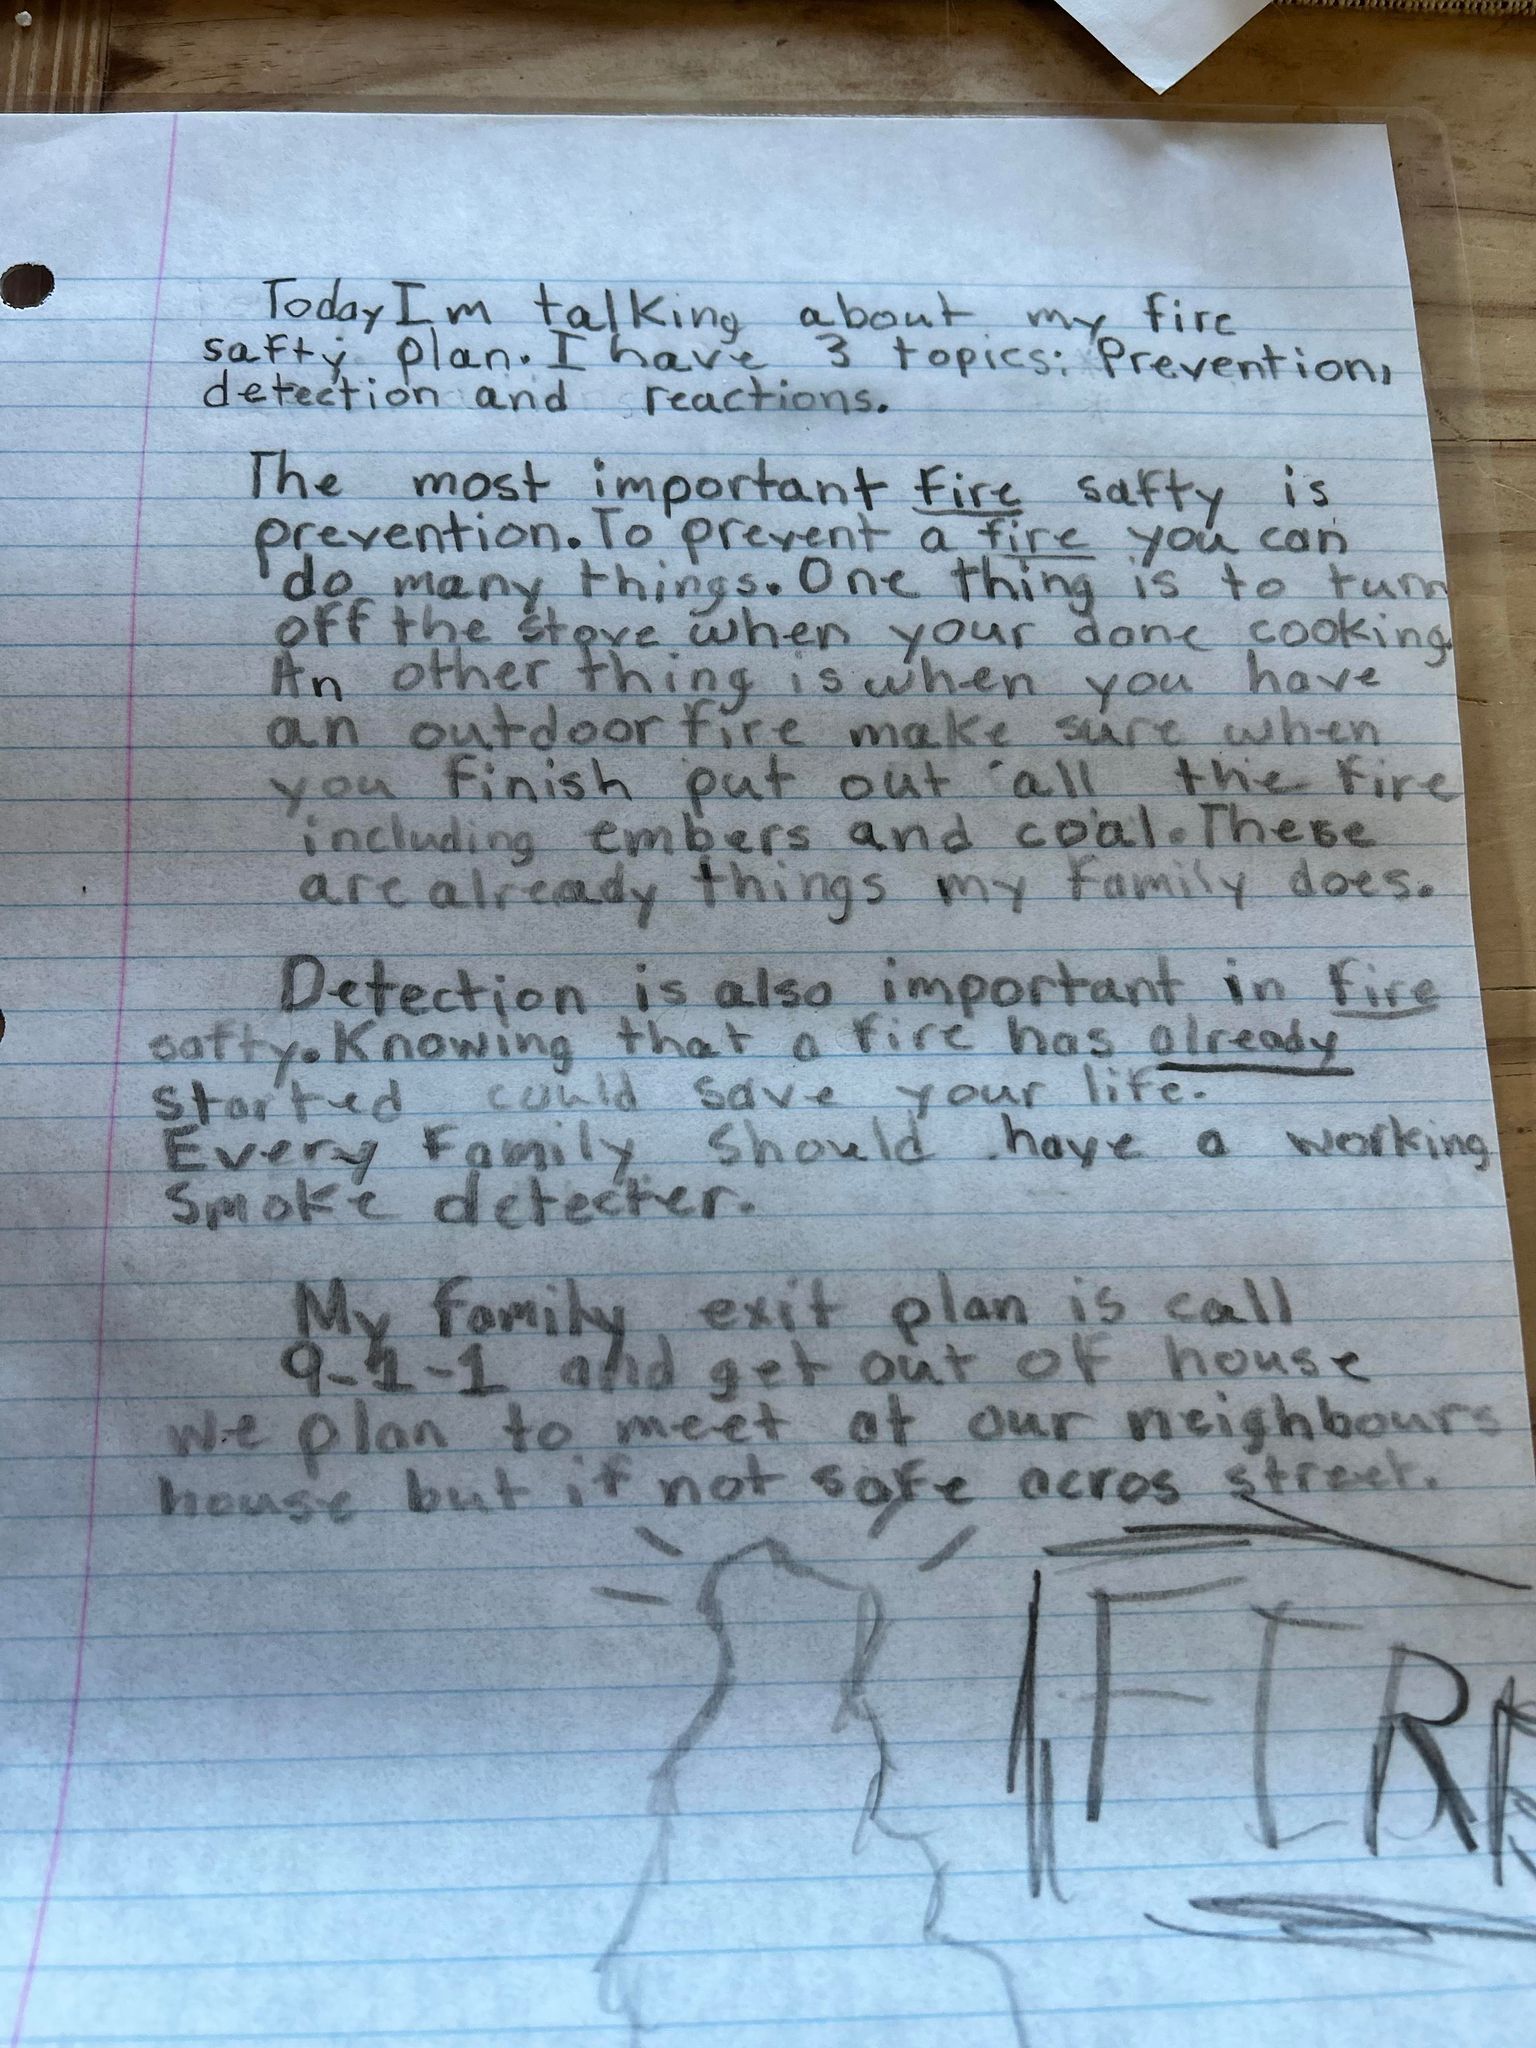 Today Im talking about my fire
safty plan. I have 3 topics: Prevention,
detection and reactions.
The most important fire safty is
prevention. To prevent a fire you can
do many things. One thing is to turn
off the stove when your done cooking.
An other thing is when you have
an outdoor fire make sure when
you finish put out all the fire
including embers and coal. These
are already things my family does.
Detection is also important in fire
safty. Knowing that a fire has already
started could save your life.
Every family should have a working
smoke detecter.
My family exit plan is call
9-1-1 and get out of house
we plan to meet at our neighbours
house but if not safe acros street.
FIR